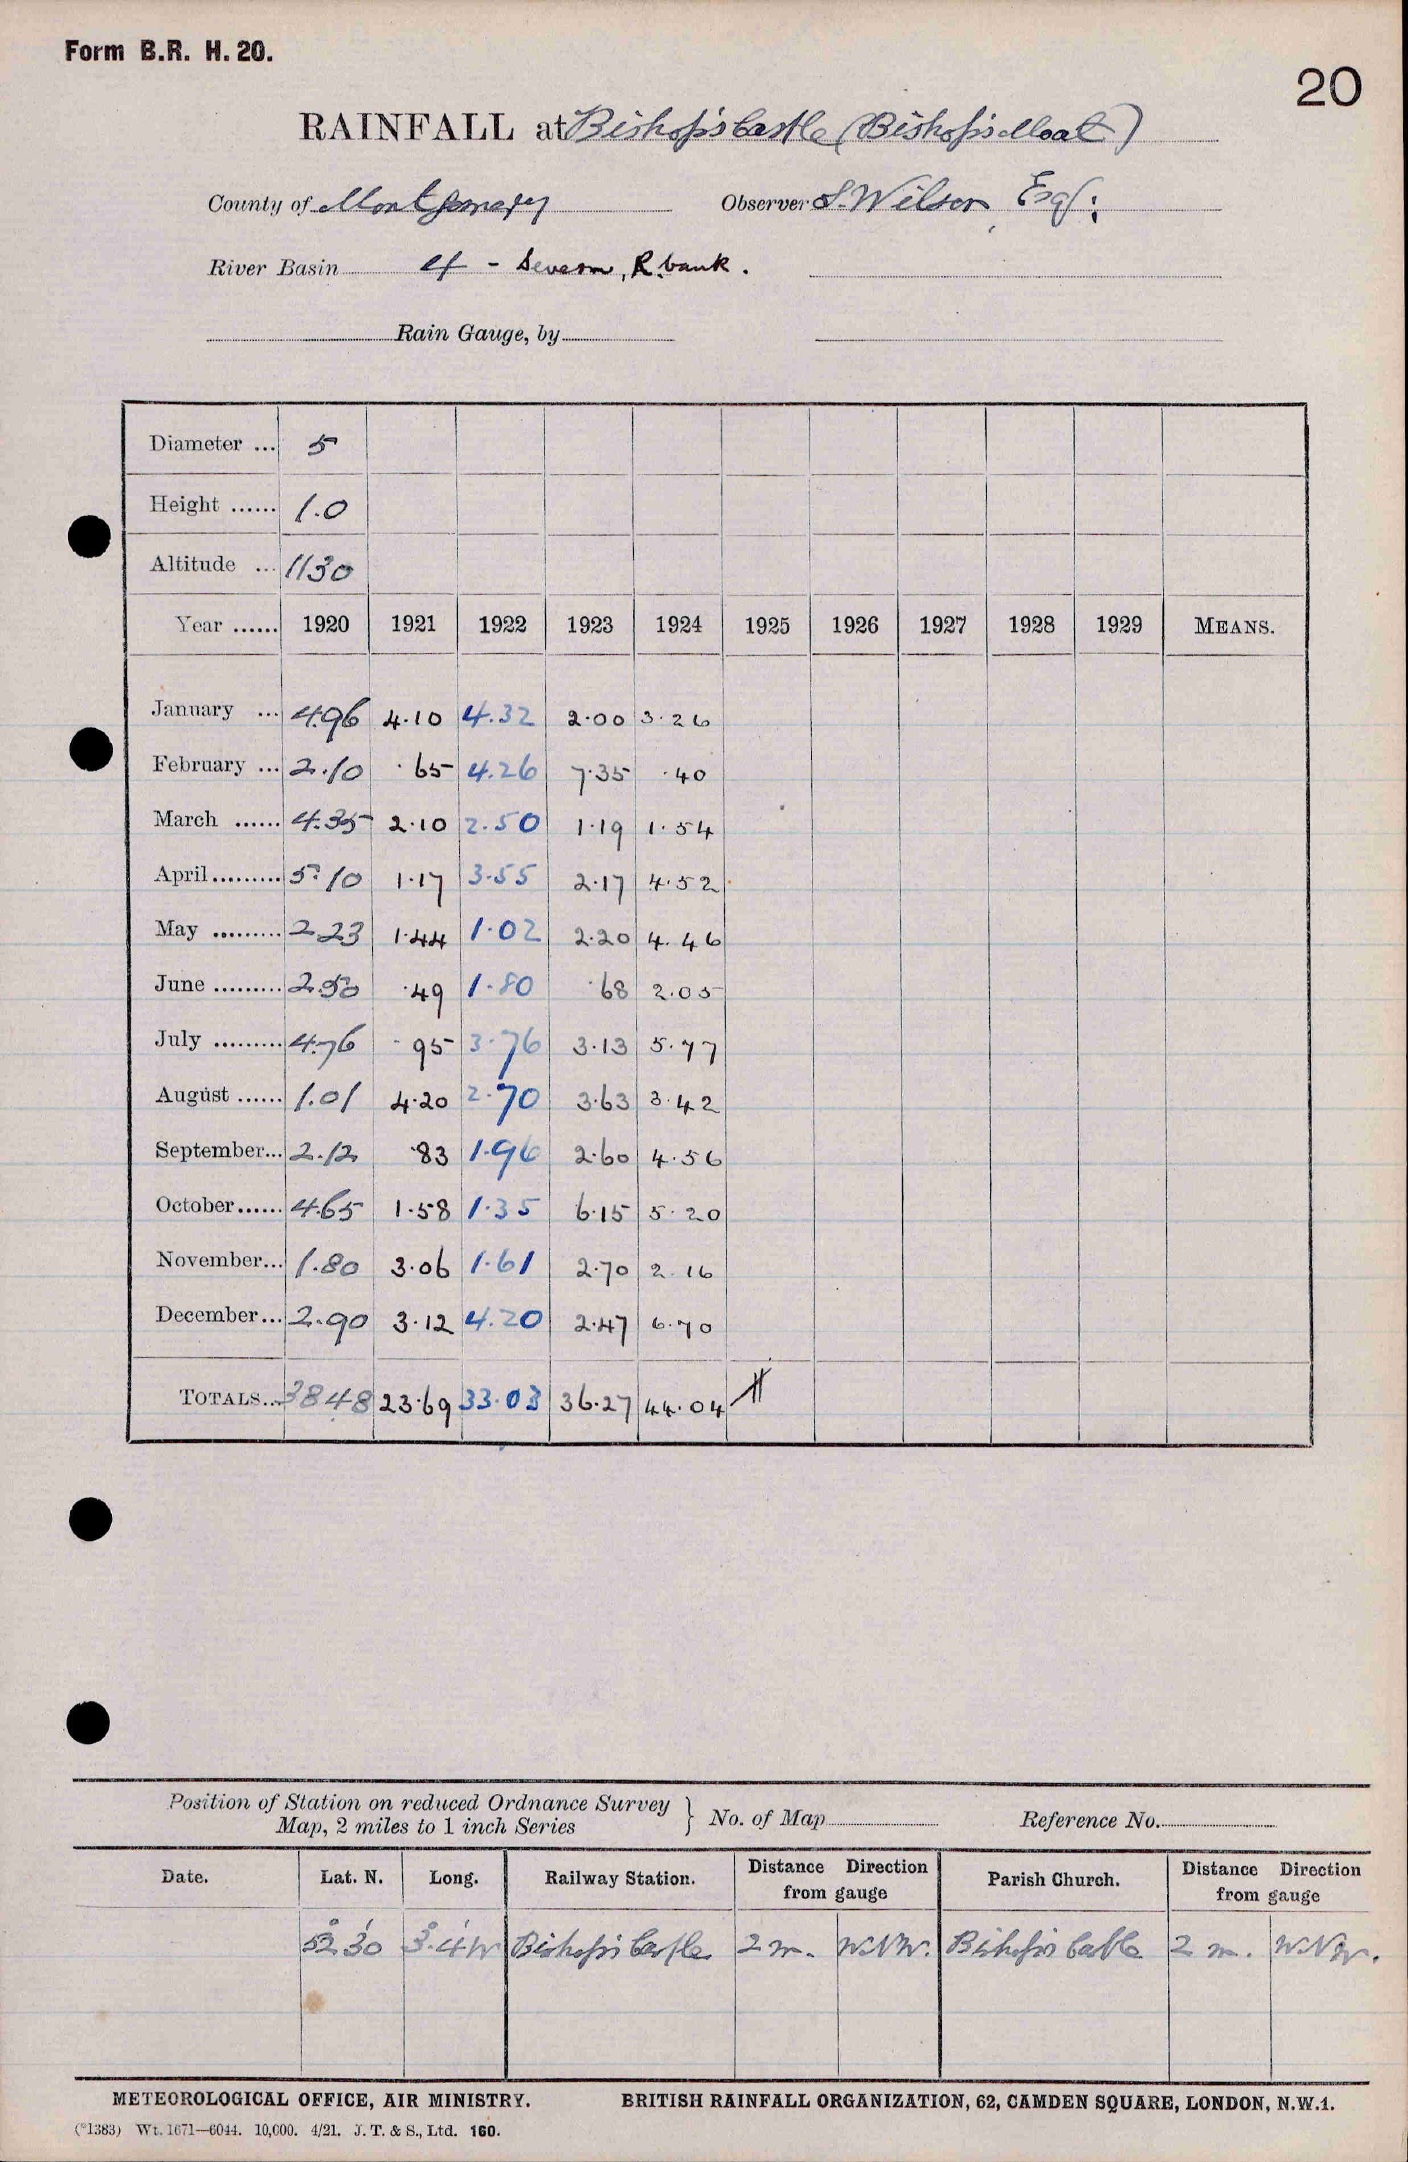 Form B.R. H. 20.
20
RAINFALL at Bishop's Castle (Bishop's Moat)
County of Montgomery Observer S. Wilson, Esq:
River Basin 4 - Severn, R. bank.
Rain Gauge, by
Diameter ... 5
Height ...... 1.0
Altitude ... 1130
Year ...... 1920 1921 1922 1923 1924 1925 1926 1927 1928 1929 MEANS.
January ... 4.96 4.10 4.32 2.00 3.26
February ... 2.10 .65 4.26 7.35 .40
March ...... 4.35 2.10 2.50 1.19 1.54
April ......... 5.10 1.17 3.55 2.17 4.52
May ......... 2.23 1.44 1.02 2.20 4.46
June ......... 2.50 .49 1.80 .68 2.05
July ......... 4.76 .95 3.76 3.13 5.77
August ...... 1.01 4.20 2.70 3.63 3.42
September... 2.12 .83 1.96 2.60 4.56
October...... 4.65 1.58 1.35 6.15 5.20
November... 1.80 3.06 1.61 2.70 2.16
December... 2.90 3.12 4.20 2.47 6.70
TOTALS... 38.48 23.69 33.03 36.27 44.04
Position of Station on reduced Ordnance Survey } No. of Map Reference No.
Map, 2 miles to 1 inch Series
Date. Lat. N. Long. Railway Station. Distance Direction from gauge Parish Church. Distance Direction from gauge
52° 30' 3° 4' W Bishop's Castle 2 m. W.N.W. Bishop's Castle 2 m. W.N.W.
METEOROLOGICAL OFFICE, AIR MINISTRY. BRITISH RAINFALL ORGANIZATION, 62, CAMDEN SQUARE, LONDON, N.W.1.
(*1383) Wt. 1671—6044. 10,000. 4/21. J. T. & S., Ltd. 160.